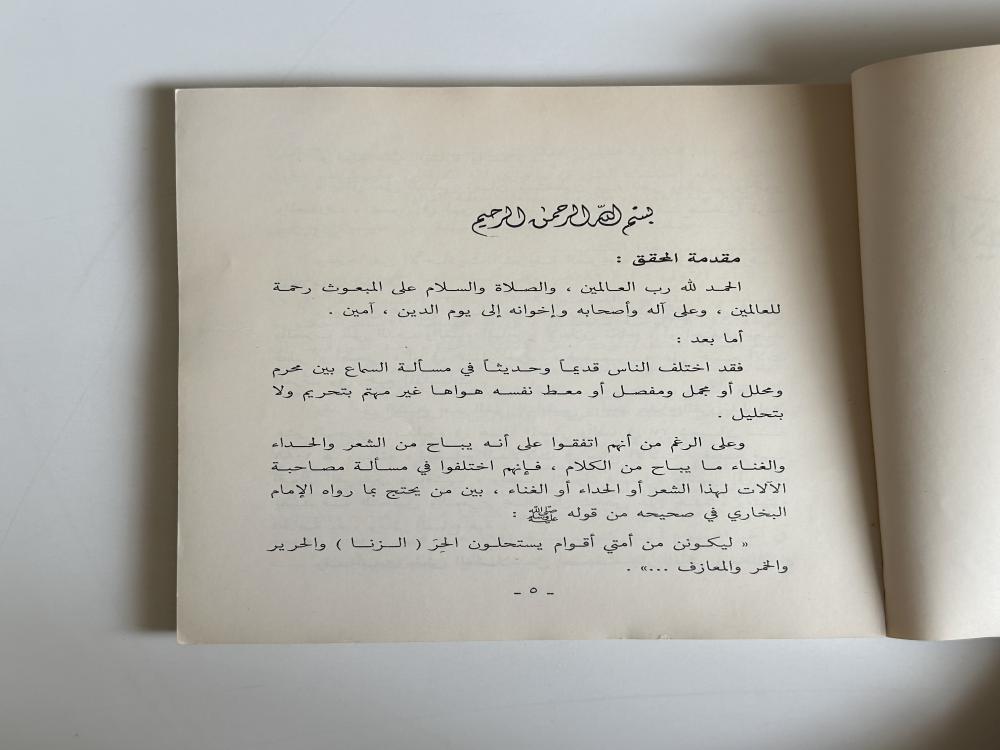 بسم الله الرحمن الرحيم
مقدمة المحقق :
الحمد لله رب العالمين ، والصلاة والسلام على المبعوث رحمة
للعالمين ، وعلى آله وأصحابه وإخوانه إلى يوم الدين ، آمين .
أما بعد :
فقد اختلف الناس قديماً وحديثاً في مسألة السماع بين محرم
ومحلل أو مجمل ومفصل أو معط نفسه هواها غير مهتم بتحريم ولا
بتحليل .
وعلى الرغم من أنهم اتفقوا على أنه يباح من الشعر والحداء
والغناء ما يباح من الكلام ، فإنهم اختلفوا في مسألة مصاحبة
الآلات لهذا الشعر أو الحداء أو الغناء ، بين من يحتج بما رواه الإمام
البخاري في صحيحه من قوله ﷺ :
« ليكونن من أمتي أقوام يستحلون الحِرَ ( الزنا ) والحرير
والخمر والمعازف ...» .
ـ ٥ ـ